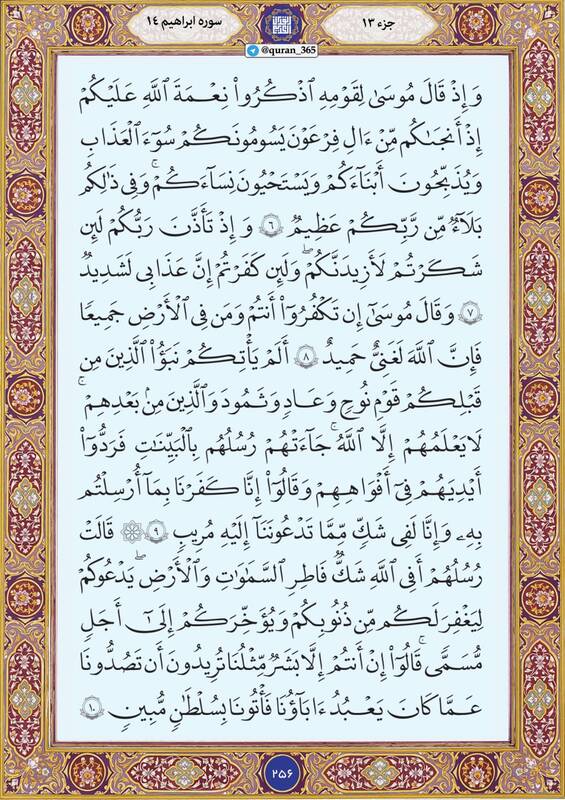 سوره ابراهیم ۱٤
جزء ۱۳
@quran_365
وَإِذْ قَالَ مُوسَىٰ لِقَوْمِهِ ٱذْكُرُوا۟ نِعْمَةَ ٱللَّهِ عَلَيْكُمْ
إِذْ أَنجَىٰكُم مِّنْ ءَالِ فِرْعَوْنَ يَسُومُونَكُمْ سُوٓءَ ٱلْعَذَابِ
وَيُذَبِّحُونَ أَبْنَآءَكُمْ وَيَسْتَحْيُونَ نِسَآءَكُمْ ۚ وَفِى ذَٰلِكُم
بَلَآءٌ مِّن رَّبِّكُمْ عَظِيمٌ ۶ وَإِذْ تَأَذَّنَ رَبُّكُمْ لَئِن
شَكَرْتُمْ لَأَزِيدَنَّكُمْ ۖ وَلَئِن كَفَرْتُمْ إِنَّ عَذَابِى لَشَدِيدٌ
۷ وَقَالَ مُوسَىٰٓ إِن تَكْفُرُوٓا۟ أَنتُمْ وَمَن فِى ٱلْأَرْضِ جَمِيعًا
فَإِنَّ ٱللَّهَ لَغَنِىٌّ حَمِيدٌ ۸ أَلَمْ يَأْتِكُمْ نَبَؤُا۟ ٱلَّذِينَ مِن
قَبْلِكُمْ قَوْمِ نُوحٍ وَعَادٍ وَثَمُودَ وَٱلَّذِينَ مِنۢ بَعْدِهِمْ ۛ
لَا يَعْلَمُهُمْ إِلَّا ٱللَّهُ ۚ جَآءَتْهُمْ رُسُلُهُم بِٱلْبَيِّنَٰتِ فَرَدُّوٓا۟
أَيْدِيَهُمْ فِىٓ أَفْوَٰهِهِمْ وَقَالُوٓا۟ إِنَّا كَفَرْنَا بِمَآ أُرْسِلْتُم
بِهِۦ وَإِنَّا لَفِى شَكٍّ مِّمَّا تَدْعُونَنَآ إِلَيْهِ مُرِيبٍ ۹ قَالَتْ
رُسُلُهُمْ أَفِى ٱللَّهِ شَكٌّ فَاطِرِ ٱلسَّمَٰوَٰتِ وَٱلْأَرْضِ ۖ يَدْعُوكُمْ
لِيَغْفِرَ لَكُم مِّن ذُنُوبِكُمْ وَيُؤَخِّرَكُمْ إِلَىٰٓ أَجَلٍ
مُّسَمًّى ۚ قَالُوٓا۟ إِنْ أَنتُمْ إِلَّا بَشَرٌ مِّثْلُنَا تُرِيدُونَ أَن تَصُدُّونَا
عَمَّا كَانَ يَعْبُدُ ءَابَآؤُنَا فَأْتُونَا بِسُلْطَٰنٍ مُّبِينٍ ۱۰
۲۵۶